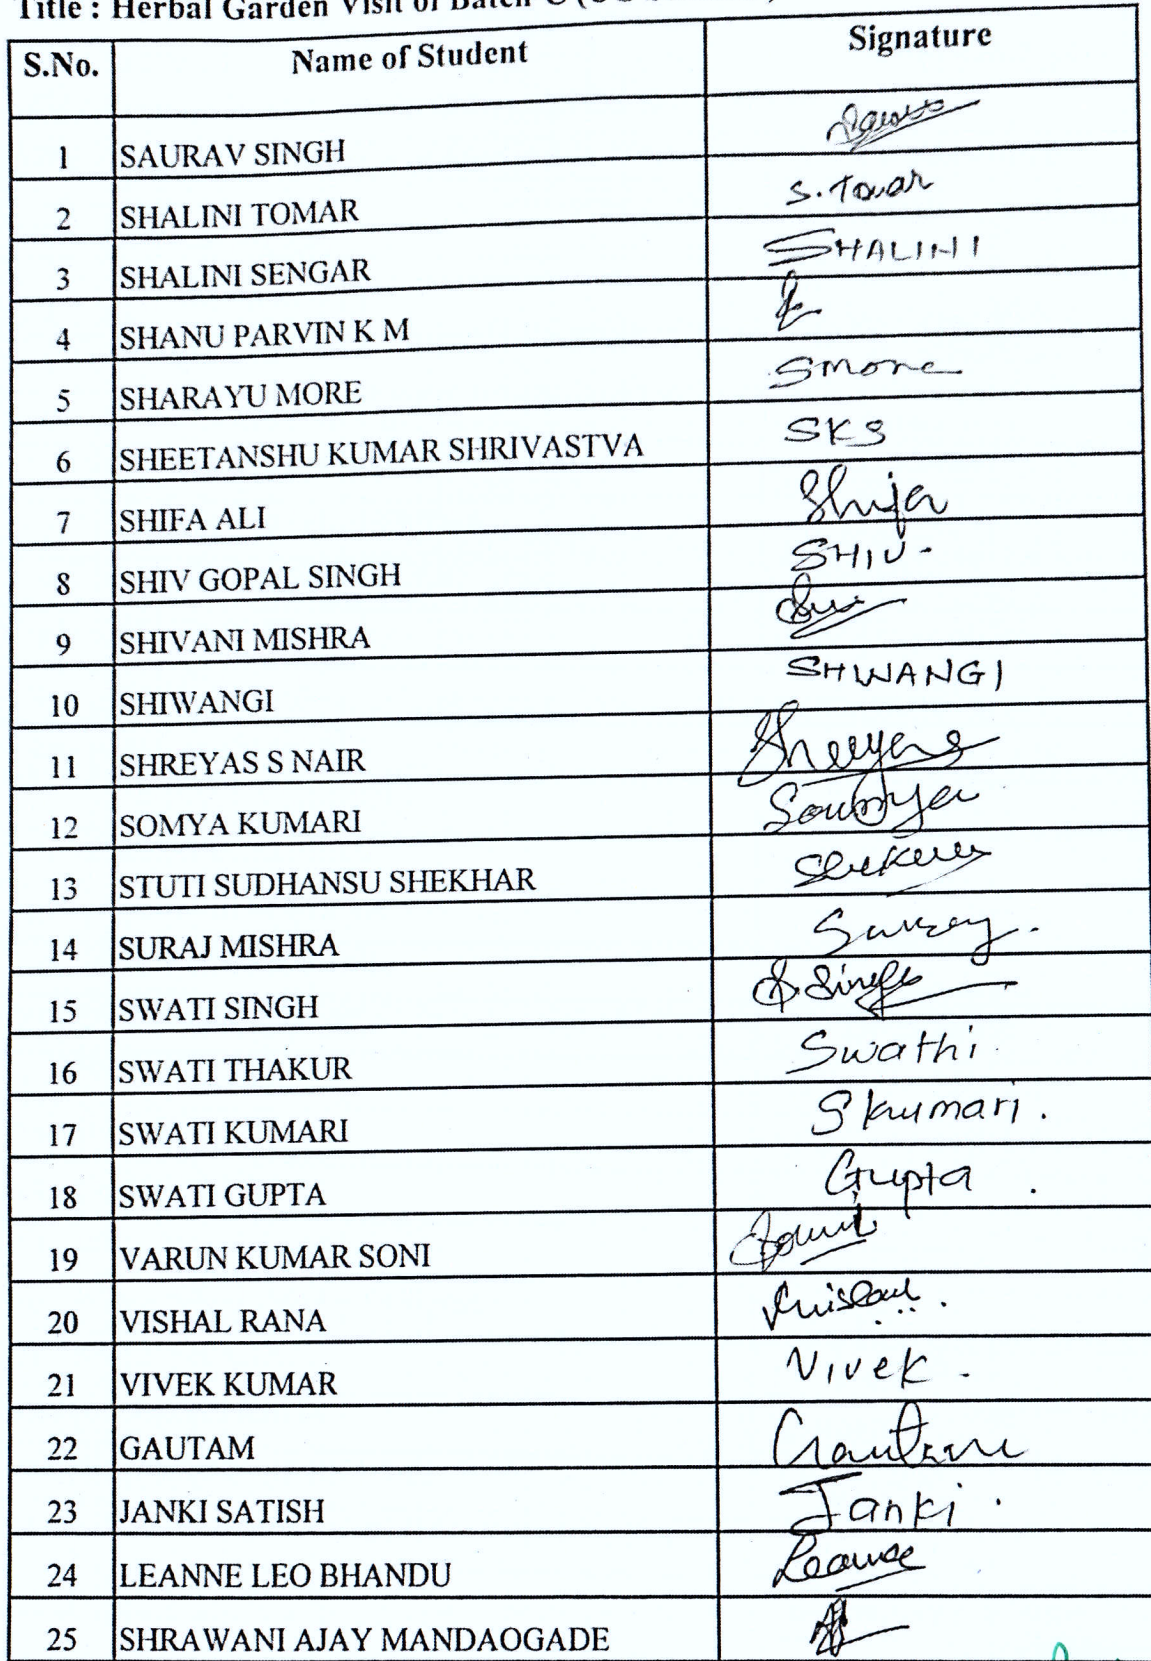 Title : Herbal Garden Visit of Batch-C
S.No. Name of Student Signature
1 SAURAV SINGH
2 SHALINI TOMAR S. Tomar
3 SHALINI SENGAR SHALINI
4 SHANU PARVIN K M
5 SHARAYU MORE Smore
6 SHEETANSHU KUMAR SHRIVASTVA SKS
7 SHIFA ALI Shifa
8 SHIV GOPAL SINGH SHIV.
9 SHIVANI MISHRA
10 SHIWANGI SHIWANGI
11 SHREYAS S NAIR Shreyas
12 SOMYA KUMARI Soumya
13 STUTI SUDHANSU SHEKHAR
14 SURAJ MISHRA Suraj.
15 SWATI SINGH S. Singh
16 SWATI THAKUR Swathi
17 SWATI KUMARI S kumari.
18 SWATI GUPTA Gupta .
19 VARUN KUMAR SONI
20 VISHAL RANA
21 VIVEK KUMAR Vivek .
22 GAUTAM Gautam
23 JANKI SATISH Janki .
24 LEANNE LEO BHANDU Leanne
25 SHRAWANI AJAY MANDAOGADE